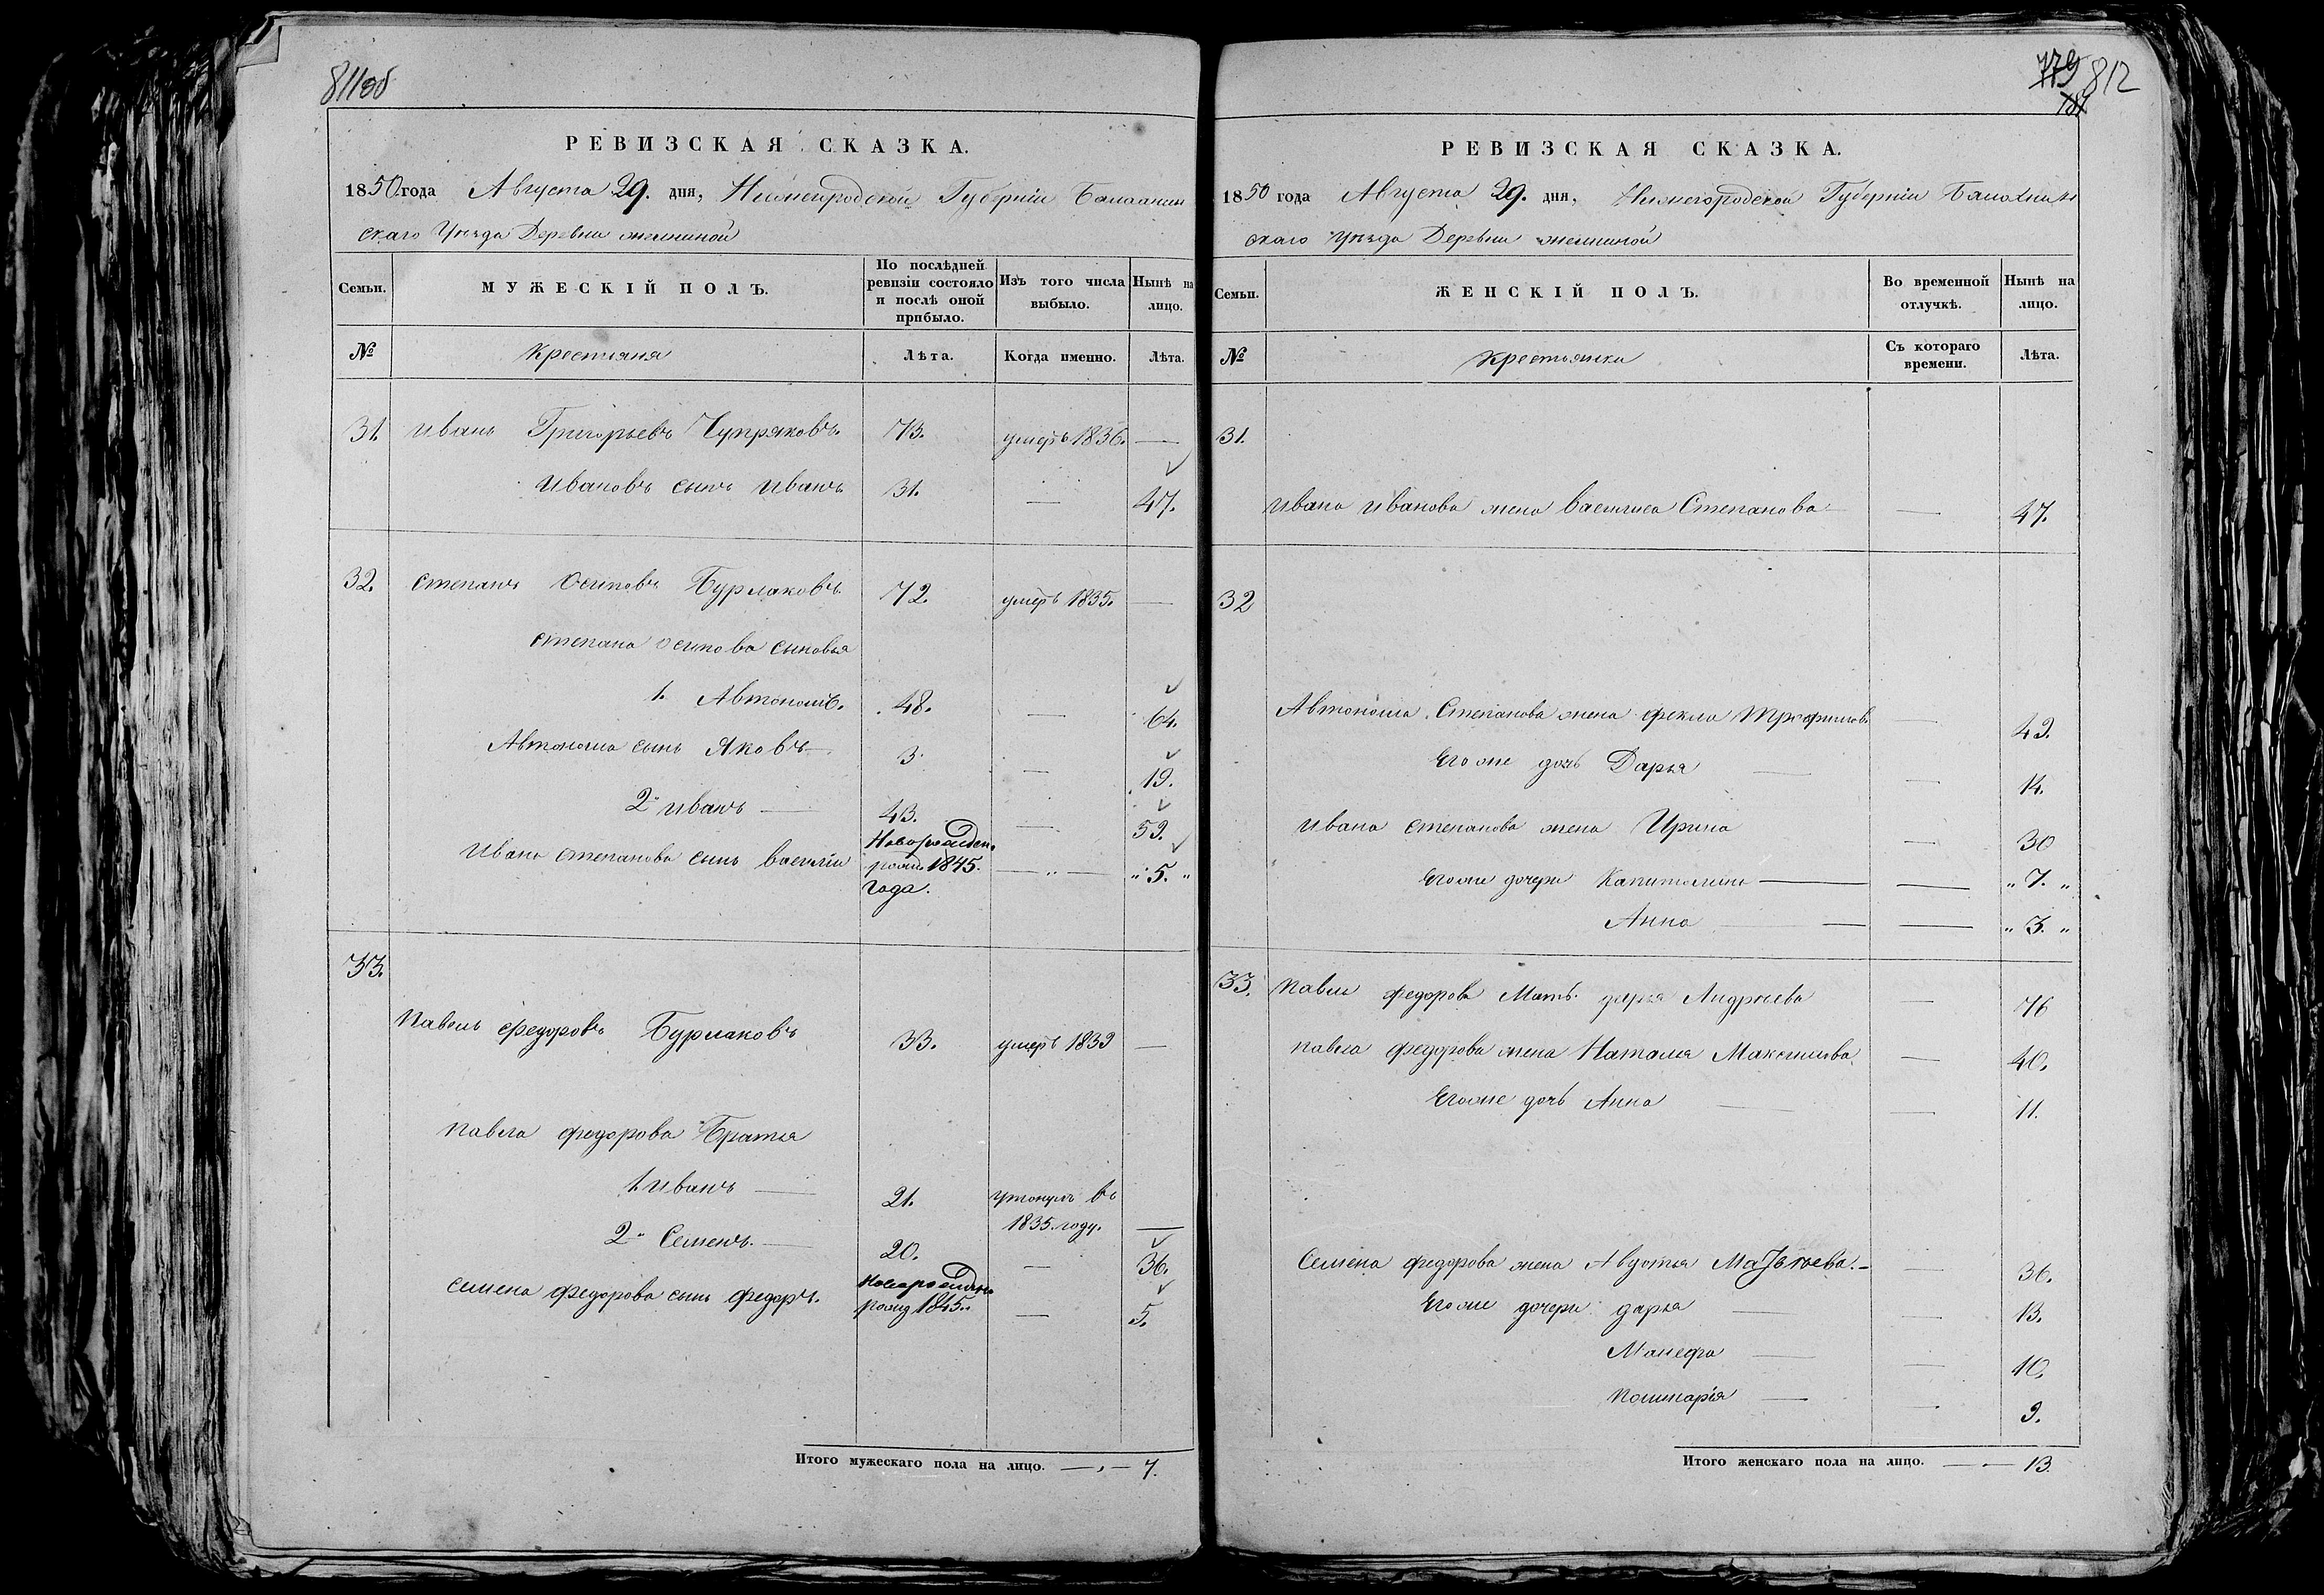 811об
РЕВИЗСКАЯ СКАЗКА.
1850 года Августа 29. дня, Нижегородской Губерніи Балахнин
скаго Уѣзда Деревни
Семьи.
МУЖЕСКІЙ ПОЛЪ.
По послѣдней ревизіи состояло и послѣ оной прибыло.
Изъ того числа выбыло.
Нынѣ на лицо.
№
Крестьяня
Лѣта.
Когда именно.
Лѣта.
31. Иванъ Григорьевъ Чупряковъ. 73. умеръ 1836. —
Ивановъ сынъ Иванъ 31. — 47.
32. Степанъ Осиповъ Бурлаковъ 72. умеръ 1835. —
Степана Осипова сыновья
1. Автономъ. 48. — 64.
Автонома сынъ Яковъ — 3. — 19.
2. Иванъ — 43. — 59.
Ивана Степанова сынъ Василіи Новорожден. рожд. 1845. года. — „ — „ 5. „
33.
Павелъ Федоровъ Бурлаковъ 33. умеръ 1839 —
Павла Федорова Братья
1. Иванъ — 21. утонулъ въ 1835. году. —
2. Семенъ. — 20. — 36.
Семена Федорова сынъ Федоръ. рожд 1845. — 5.
Итого мужескаго пола на лицо. — 7.
779 812
РЕВИЗСКАЯ СКАЗКА.
1850 года Августа 29. дня, Нижегородской Губерніи Балахнин
скаго Уѣзда Деревни
Семьи.
ЖЕНСКІЙ ПОЛЪ.
Во временной отлучкѣ.
Нынѣ на лицо.
№
Крестьянки
Съ котораго времени.
Лѣта.
31.
Ивана Иванова жена Василиса Степанова — — 47.
32
Автонома Степанова жена Фекла Трофимов. — 49.
Егоже дочь Дарья — — 14.
Ивана Степанова жена Ирина — 30
Егоже дочери Капитолина — — „ 7. „
Анна — — „ 3. „
33. Павла Федорова Мать. Дарья Андрѣева — 76
Павла Федорова жена Наталья Максимова — 40.
Егоже дочь Анна — — 11.
Семена Федорова жена Авдотья Матвѣева. — — 36.
Егоже дочери Дарья — — 13.
Манефа — — 10.
— — 9.
Итого женскаго пола на лицо. — 13.